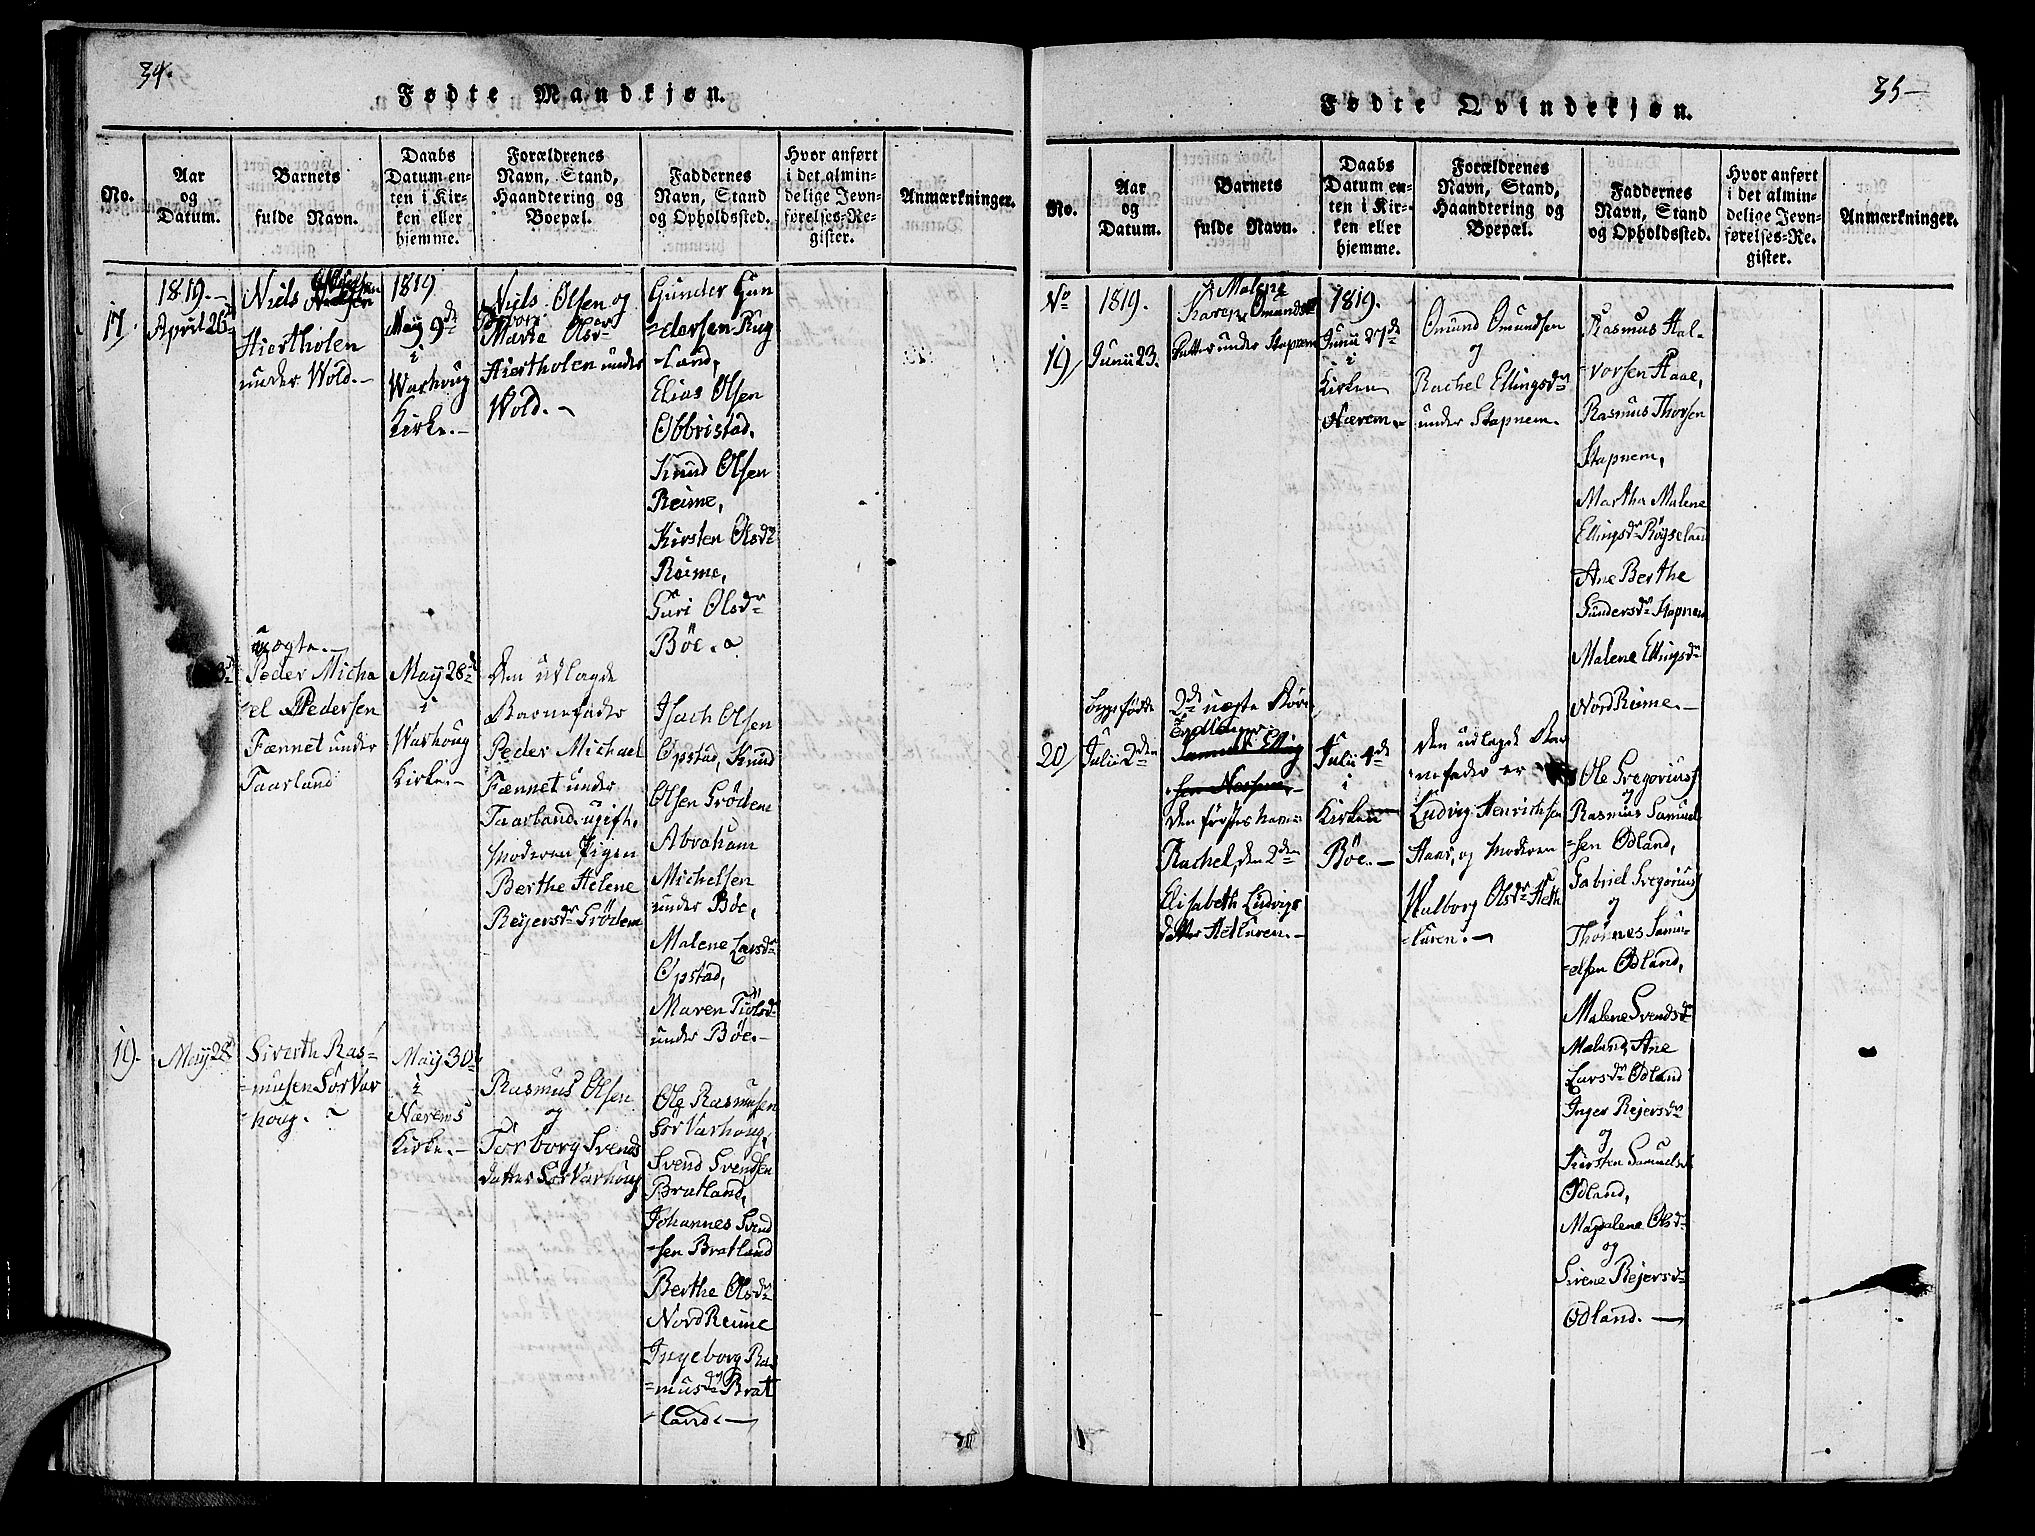 34.
Fødte Mandkjøn.
No.
Aar
og
Datum.
Barnets
fulde Navn.
Daabs
Datum en-
ten i Kir-
ken eller
hjemme.
Forældrenes
Navn, Stand,
Haandtering og
Boepæl.
Faddernes
Navn, Stand
og Opholdssted.
Hvor anført
i det almin-
delige Jevn-
førelses-Re-
gister.
Anmærkninger.
17.
1819.-
April 26d
Niels
Hiertholen
under Wold.-
1819
May 9de
i
Warhoug
Kirke.-
Niels Olsen og
Marte Olsdr
Hiertholen under
Wold.-
Gunder Gun
=dersen Kug
=land,
Elias Olsen
Obbristad,
Knud Olsen
Reime,
Kirsten Olsdr
Reime,
Guri Olsdr
Böe.
uægte.-
Peder Micha
=el Pedersen
Fænnet under
Taarland
May 28d
i
Warhoug
Kirke.-
Den udlagde
Barnefader
Peder Michael
Fænnet under
Taarland ugift,
Moderen Pigen
Berthe Helene
Reijersdr Grödem
Isach Olsen
Opstad, Knud
Olsen Grödem
Abraham
Michelsen
under Böe,
Malene Larsdr
Opstad,
Maren Tiölsdr
under Böe.-
19.
May 28d
Siverth Ras=
=musen Sör Var
=houg.
May 30d
i
Nærems
Kirke.-
Rasmus Olsen
og
Torborg Svends
datter Sör Varhoug
Ole Rasmusen
Sör Varhoug,
Svend Svendsen
Bratland,
Johannes Svend
=sen Bratland
Berthe Olsdr
Nord Reime
Ingeborg Ras
=musdr Brat
=land.-
35-
Fødte Qvindekjøn.
No.
Aar
og
Datum.
Barnets
fulde Navn.
Daabs
Datum en-
ten i Kir-
ken eller
hjemme.
Forældrenes
Navn, Stand,
Haandtering og
Boepæl.
Faddernes
Navn, Stand
og Opholdssted.
Hvor anført
i det almin-
delige Jevn-
førelses-Re-
gister.
Anmærkninger.
No
19/
1819.
Junii 23.
Malene
Karen Omunds
datter under Stapnem
1819.
Junii 27de
i
Kirken
Nærem.-
Omund Omundsen
og
Rachel Ellingsdr
under Stapnem.
Rasmus Hal-
=vorsen Haae,
Rasmus Thorsen
Stapnem,
Martha Malene
Ellingsdr Röyseland
Ane Berthe
Gundersdr Stapnem
Malene Ellingsdr
Nord Reime.-
20/
Julii 2den
2de uægte Börn
Den förstes navn
Rachel, den 2den
Elisabeth Ludvigs
datter Hetluren.-
Julii 4de
i
Kirken
Böe.-
Den udlagde Bar
=nefader er
Ludvig Henrichsen
Haar, og Moderen
Walborg Olsdr Heth
=luren.-
Ole Gregoriuss
og
Rasmus Samuel
=sen Ødland,
Gabriel Gregoriuss
og
Thönnes Samu-
=elsen Ødland,
Malene Svendsdr
Maland, Ane
Larsdr Ødland
Inger Rejersdr
og
Kirsten Samuelsd
Ødland,
Magdalene Olsdr
og
Sirene Rejersdr
Ødland.-